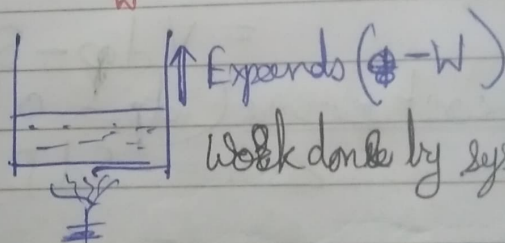 Expends (-W)
Work done by sys